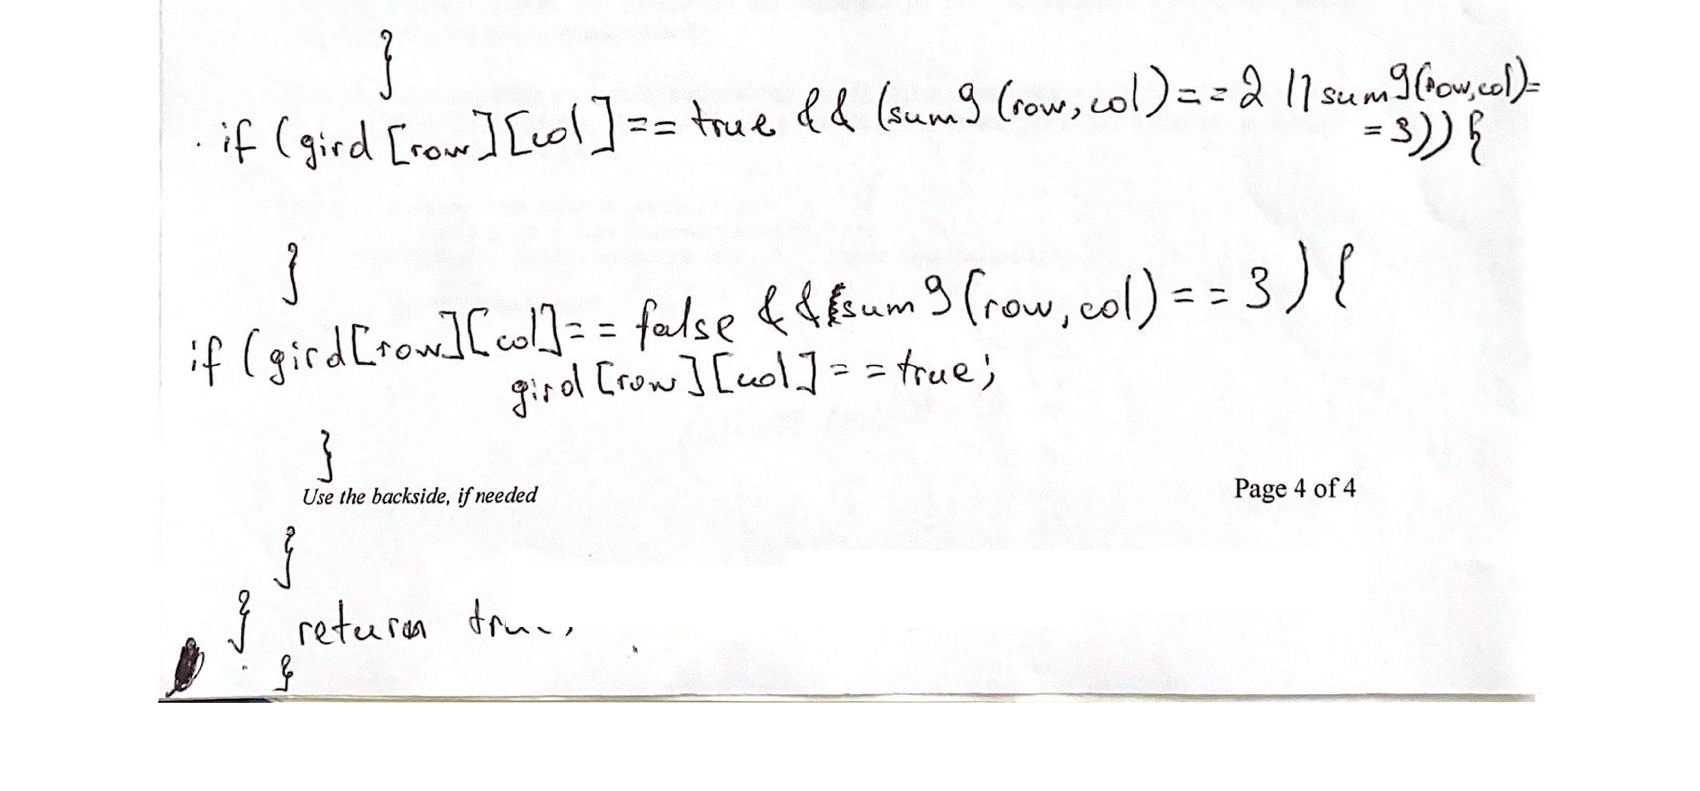 }
if (gird [row][col]== true && (sum9 (row, col)== 2 || sum9(row,col)=
= 3)) {
}
if (gird[row][col]== false && sum9 (row, col) == 3) {
gird [row][col]== true;
}
Use the backside, if needed
Page 4 of 4
}
} return
}